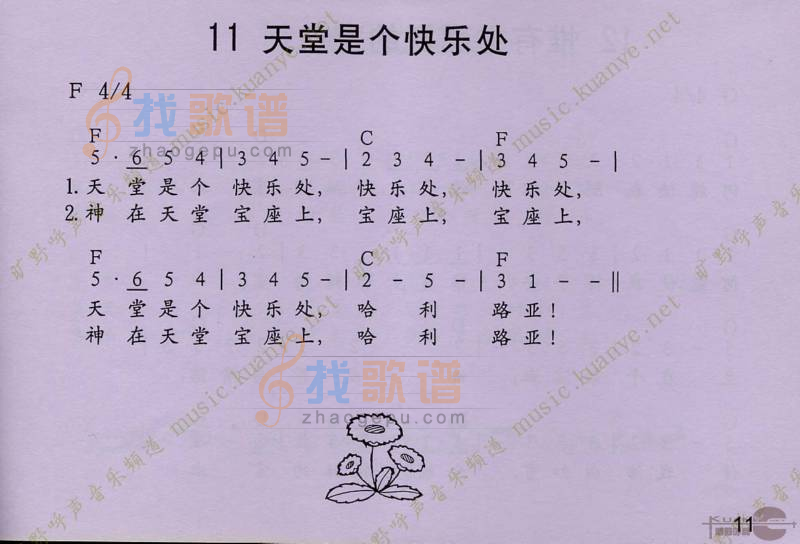 11 天堂是个快乐处
F 4/4
F C F
5 · 6 5 4 | 3 4 5 - | 2 3 4 - | 3 4 5 - |
1.天 堂是个 快乐处, 快乐处, 快乐处,
2.神 在天堂 宝座上, 宝座上, 宝座上,
F C F
5 · 6 5 4 | 3 4 5 - | 2 - 5 - | 3 1 - - ‖
天 堂是个 快乐处, 哈 利 路亚!
神 在天堂 宝座上, 哈 利 路亚!
找歌谱
zhaogepu.com
找歌谱
zhaogepu.com
旷野呼声音乐频道 music.kuanye.net
旷野呼声音乐频道 music.kuanye.net
旷野呼声音乐频道 music.kuanye.net
11